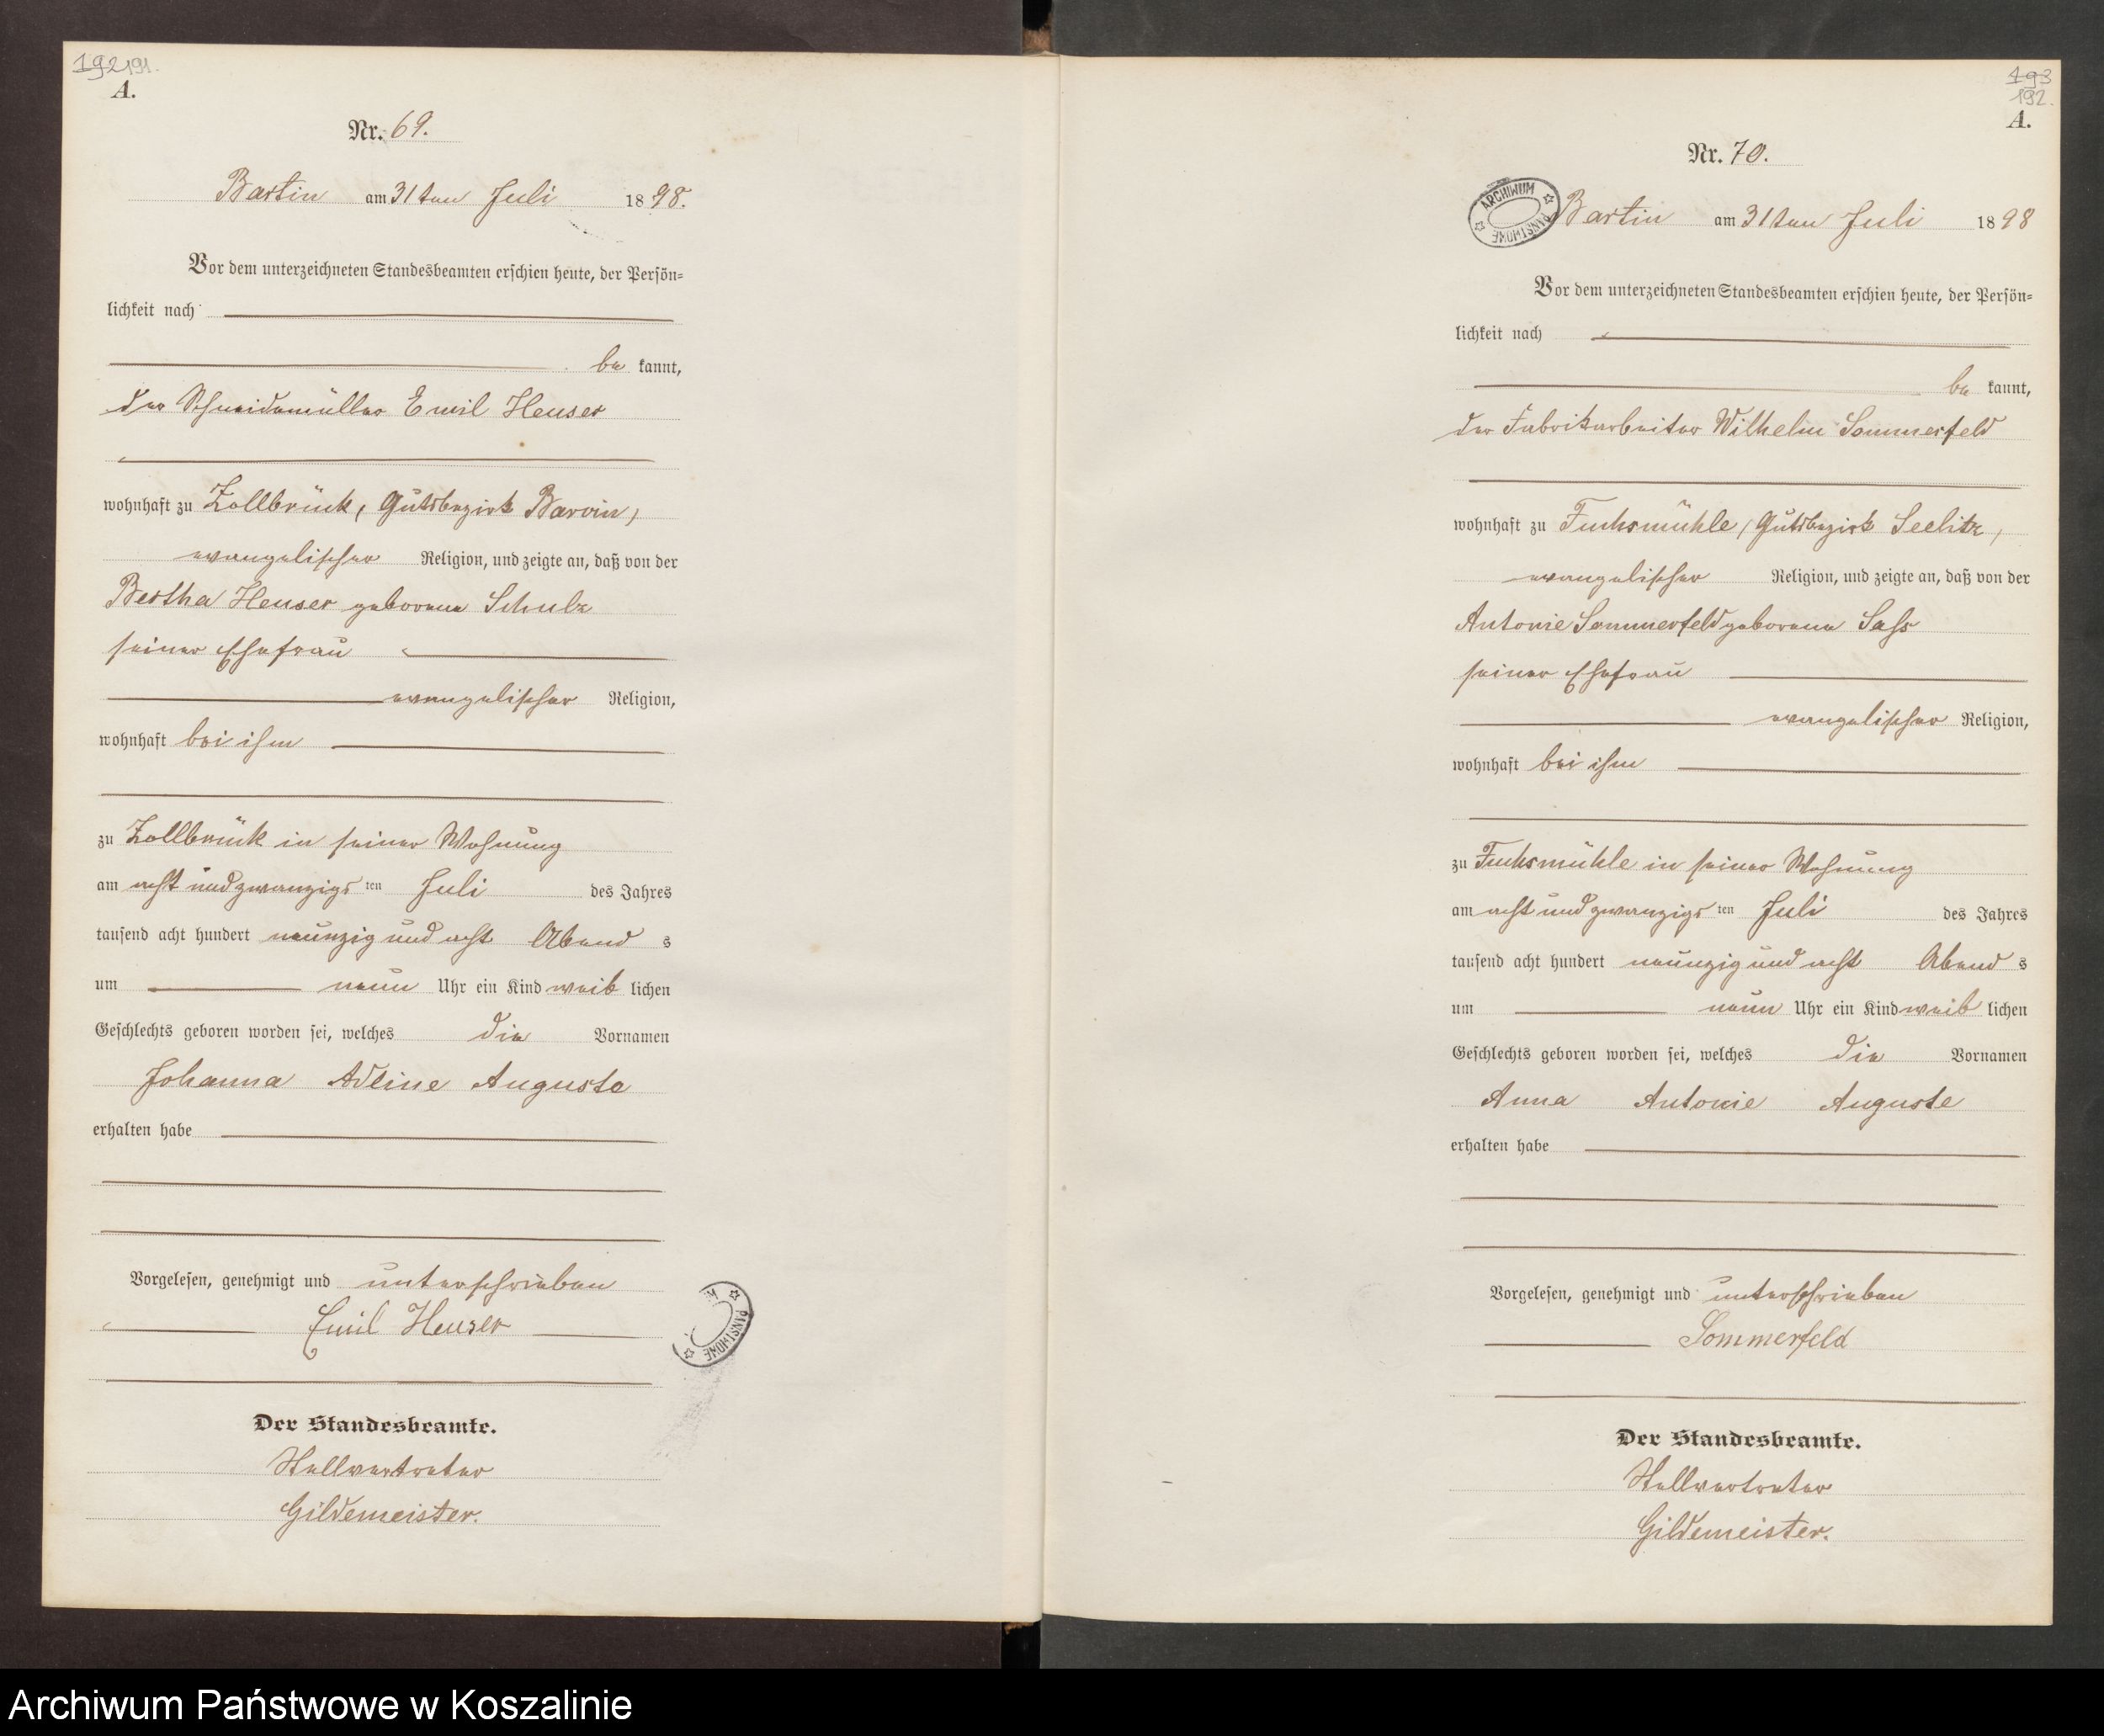 192 191.
A.
Nr. 69.
Bartin am 31ten Juli 1898.
Vor dem unterzeichneten Standesbeamten erschien heute, der Persön-
lichkeit nach
be kannt,
der Schneidemüller Emil Heuser
wohnhaft zu Zollbrück, Gutsbezirk Barvin,
evangelischer Religion, und zeigte an, daß von der
Bertha Heuser geborene Schulz
seiner Ehefrau
evangelischer Religion,
wohnhaft bei ihm
zu Zollbrück in seiner Wohnung
am acht und zwanzigsten Juli des Jahres
tausend acht hundert neunzig und acht Abend s
um neun Uhr ein Kind weib lichen
Geschlechts geboren worden sei, welches die Vornamen
Johanna Adline Auguste
erhalten habe
Vorgelesen, genehmigt und unterschrieben
Emil Heuser
Der Standesbeamte.
Stellvertreter
Gildemeister.
PAŃSTWOWE
193
192.
A.
Nr. 70.
ARCHIWUM PAŃSTWOWE
Bartin am 31ten Juli 1898
Vor dem unterzeichneten Standesbeamten erschien heute, der Persön-
lichkeit nach
be kannt,
der Fabrikarbeiter Wilhelm Sommerfeld
wohnhaft zu Fuchsmühle, Gutsbezirk Seelitz,
evangelischer Religion, und zeigte an, daß von der
Antonie Sommerfeld geborene Saß
seiner Ehefrau
evangelischer Religion,
wohnhaft bei ihm
zu Fuchsmühle in seiner Wohnung
am acht und zwanzigsten Juli des Jahres
tausend acht hundert neunzig und acht Abend s
um neun Uhr ein Kind weib lichen
Geschlechts geboren worden sei, welches die Vornamen
Anna Antonie Auguste
erhalten habe
Vorgelesen, genehmigt und unterschrieben
Sommerfeld
Der Standesbeamte.
Stellvertreter
Gildemeister.
Archiwum Państwowe w Koszalinie